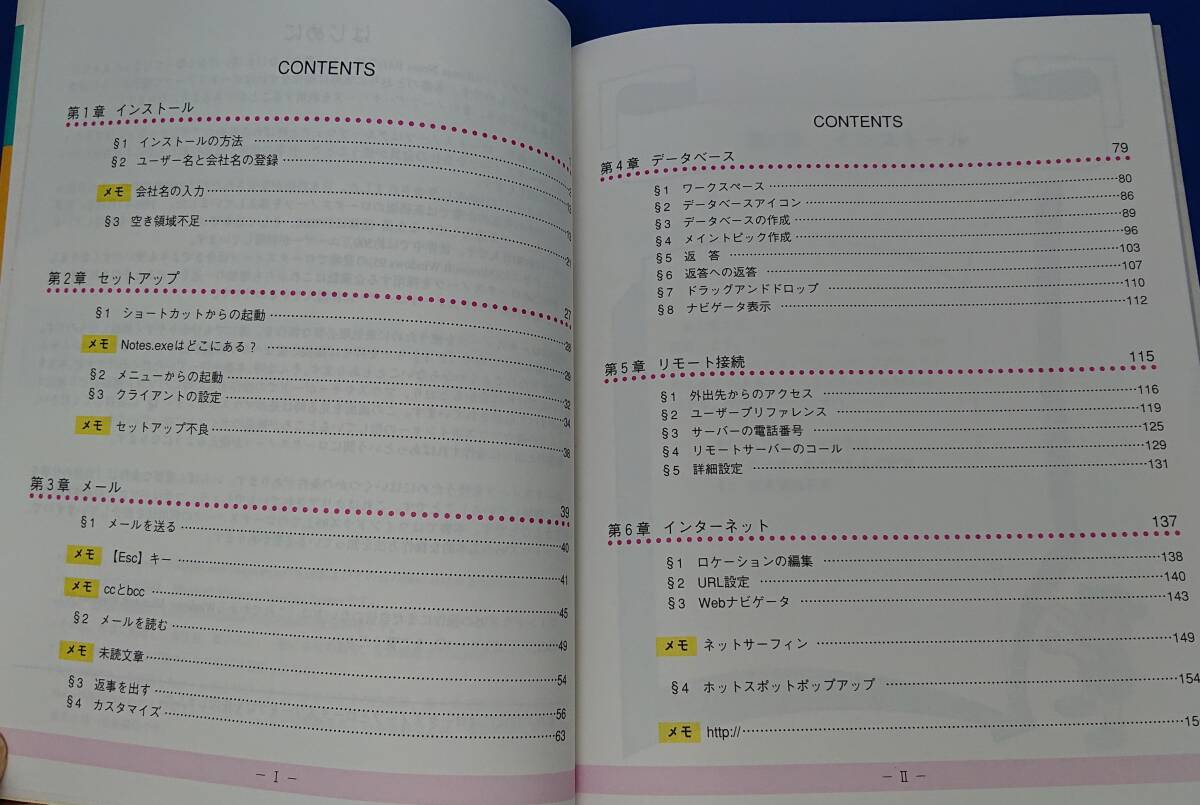 CONTENTS
第1章 インストール
§1 インストールの方法
§2 ユーザー名と会社名の登録
メモ 会社名の入力
§3 空き領域不足 21
第2章 セットアップ 27
§1 ショートカットからの起動 28
メモ Notes.exeはどこにある? 29
§2 メニューからの起動 32
§3 クライアントの設定 34
メモ セットアップ不良 38
第3章 メール 39
§1 メールを送る 40
メモ 【Esc】キー 41
メモ ccとbcc 45
§2 メールを読む 49
メモ 未読文章 54
§3 返事を出す 56
§4 カスタマイズ 63
- I -
CONTENTS
第4章 データベース 79
§1 ワークスペース 80
§2 データベースアイコン 86
§3 データベースの作成 89
§4 メイントピック作成 96
§5 返 答 103
§6 返答への返答 107
§7 ドラッグアンドドロップ 110
§8 ナビゲータ表示 112
第5章 リモート接続 115
§1 外出先からのアクセス 116
§2 ユーザープリファレンス 119
§3 サーバーの電話番号 125
§4 リモートサーバーのコール 129
§5 詳細設定 131
第6章 インターネット 137
§1 ロケーションの編集 138
§2 URL設定 140
§3 Webナビゲータ 143
メモ ネットサーフィン 149
§4 ホットスポットポップアップ 154
メモ http://
- II -